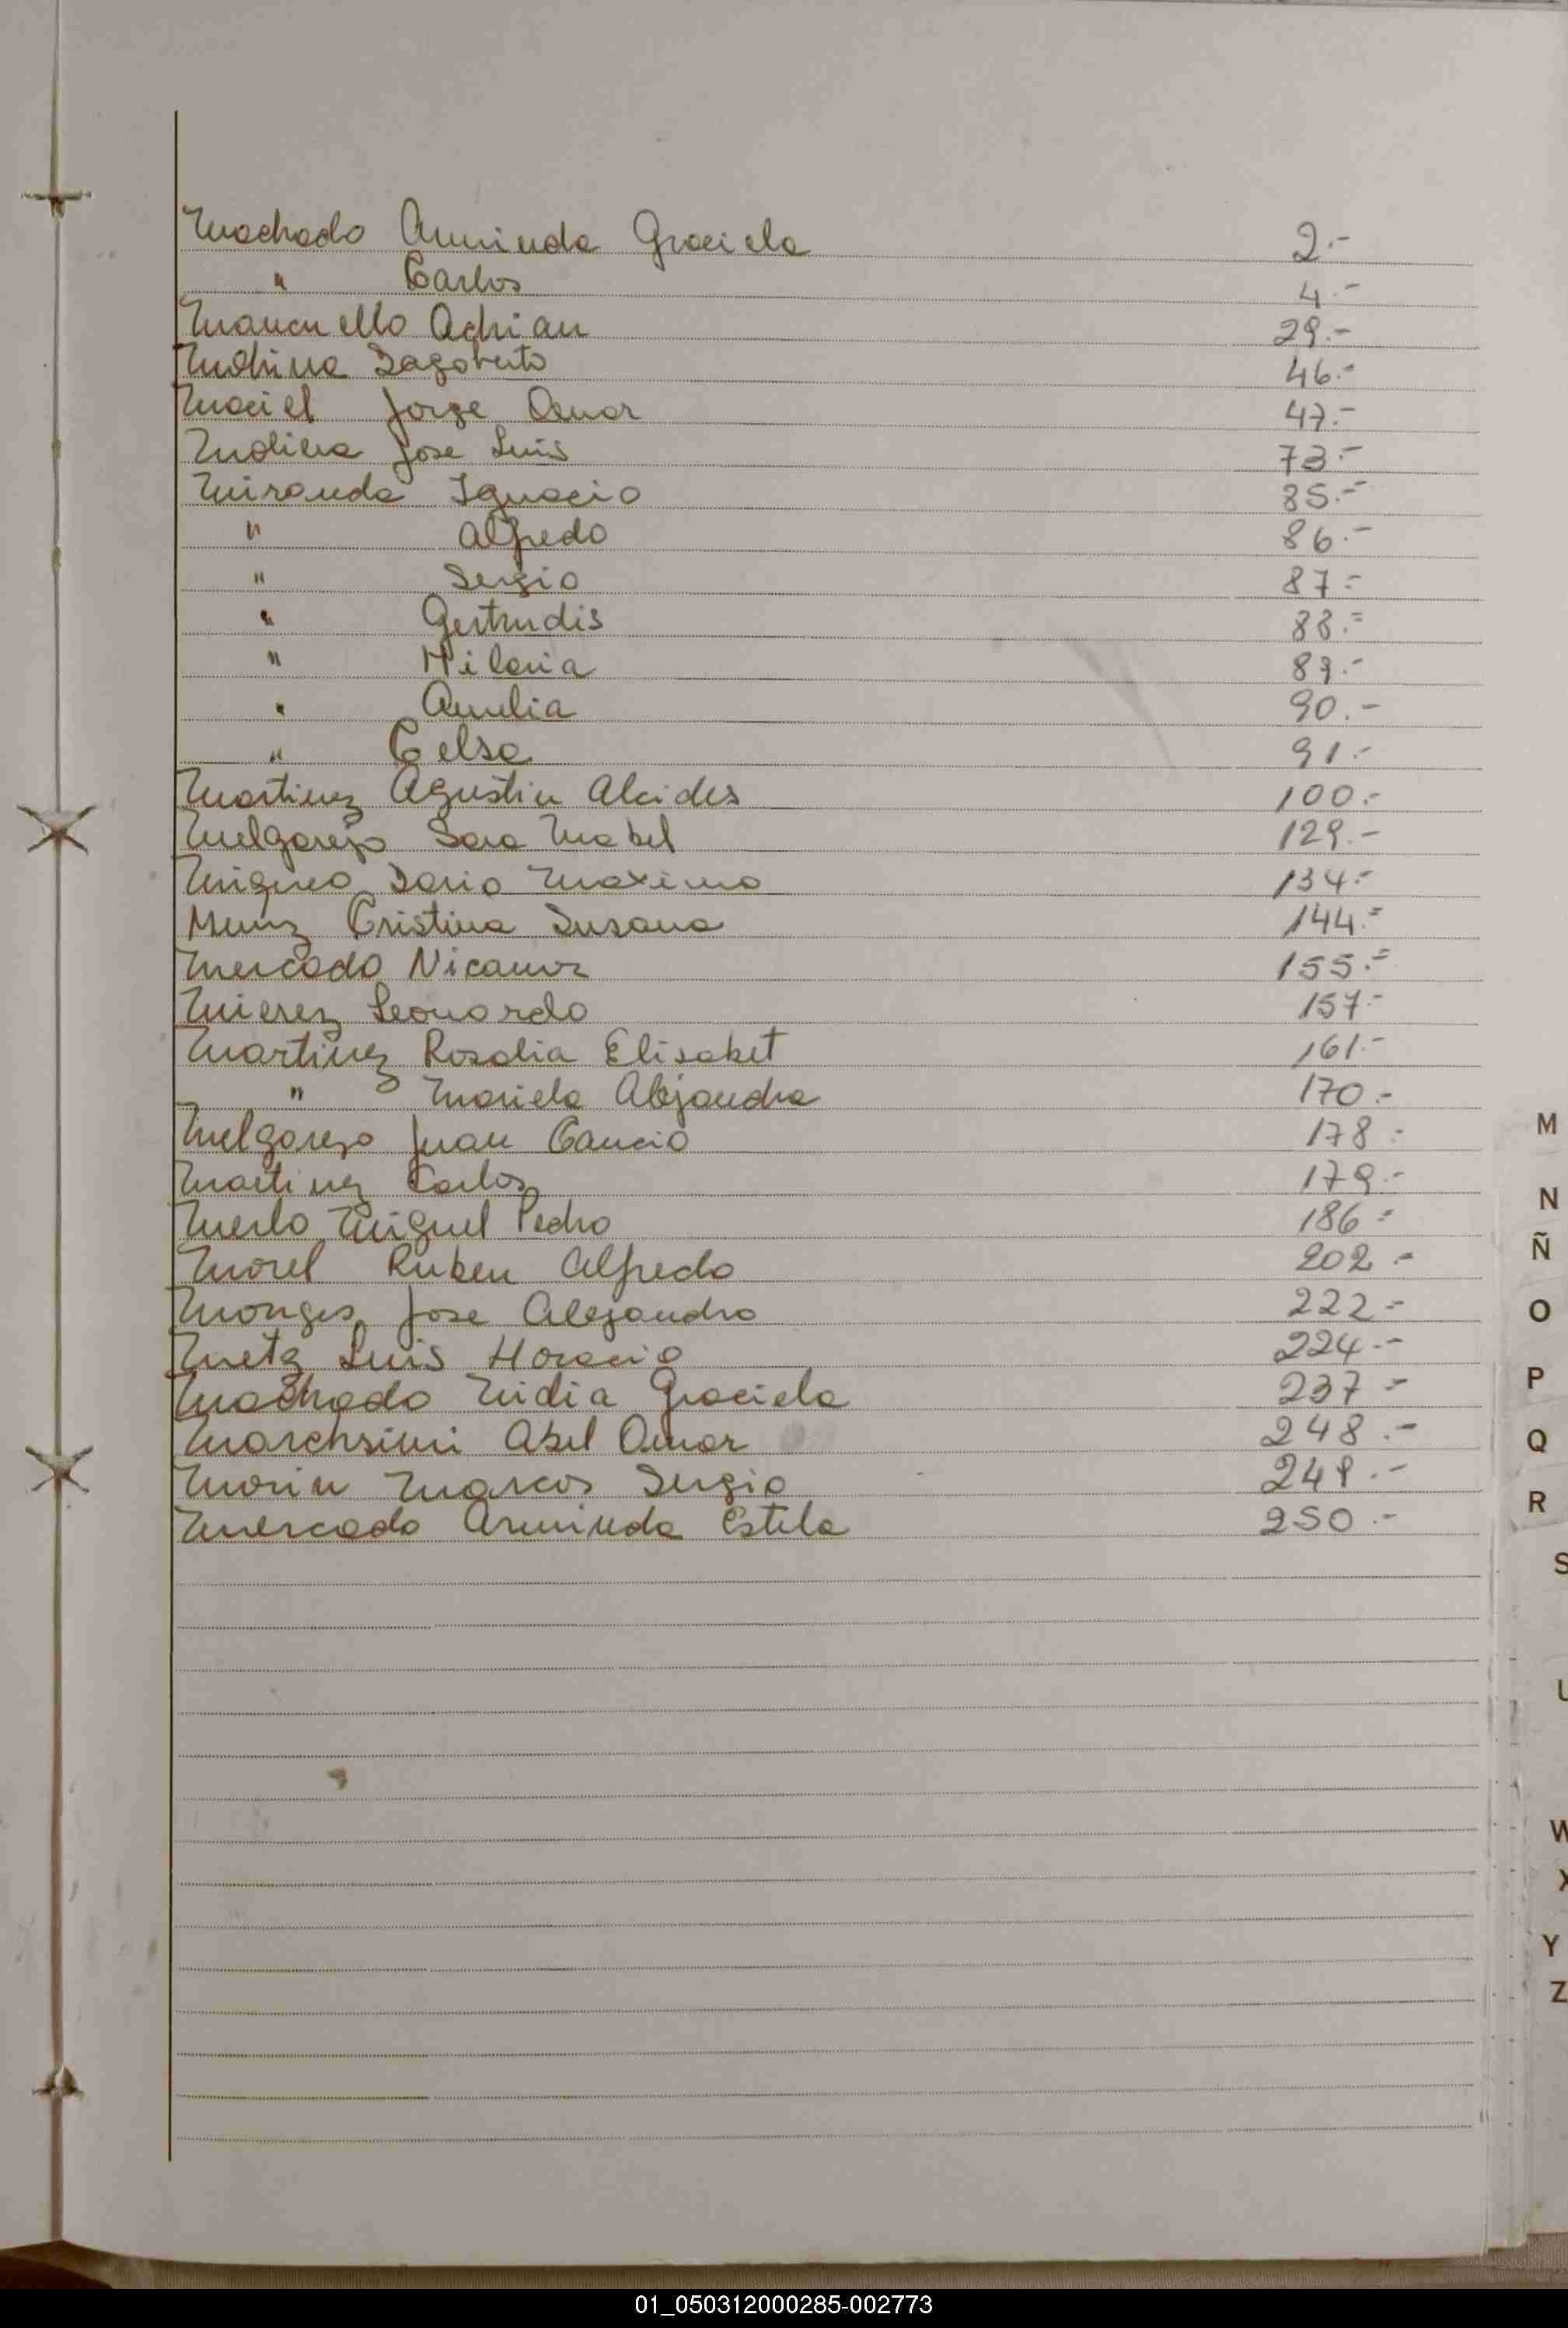 Machado Arminda Graciela 2.-
" Carlos 4.-
Mancuello Adrian 29.-
Molina Dagoberto 46.-
Maciel Jorge Omar 47.-
Molina Jose Luis 73.-
Miranda Ignacio 85.-
" Alfredo 86.-
" Sergio 87.-
" Gertrudis 88.-
" Hilaria 89.-
" Amelia 90.-
" Celsa 91.-
Martinez Agustin Alcides 100.-
Melgarejo Sara Mabel 129.-
Migueo Dario Maximo 134.-
Muniz Cristina Susana 144.-
Mercado Nicanor 155.-
Mierez Leonardo 157.-
Martinez Rosalia Elisabet 161.-
" Mariela Alejandra 170.-
Melgarejo Juan Cancio 178.-
Martinez Carlos 179.-
Merlo Miguel Pedro 186.-
Morel Ruben Alfredo 202.-
Monges Jose Alejandro 222.-
Metz Luis Horacio 224.-
Machado Lidia Graciela 237.-
Abel Omar 248.-
Morin Marcos Sergio 249.-
Mercado Arminda Estela 250.-
M
N
Ñ
O
P
Q
R
S
U
W
X
Y
Z
01_050312000285-002773